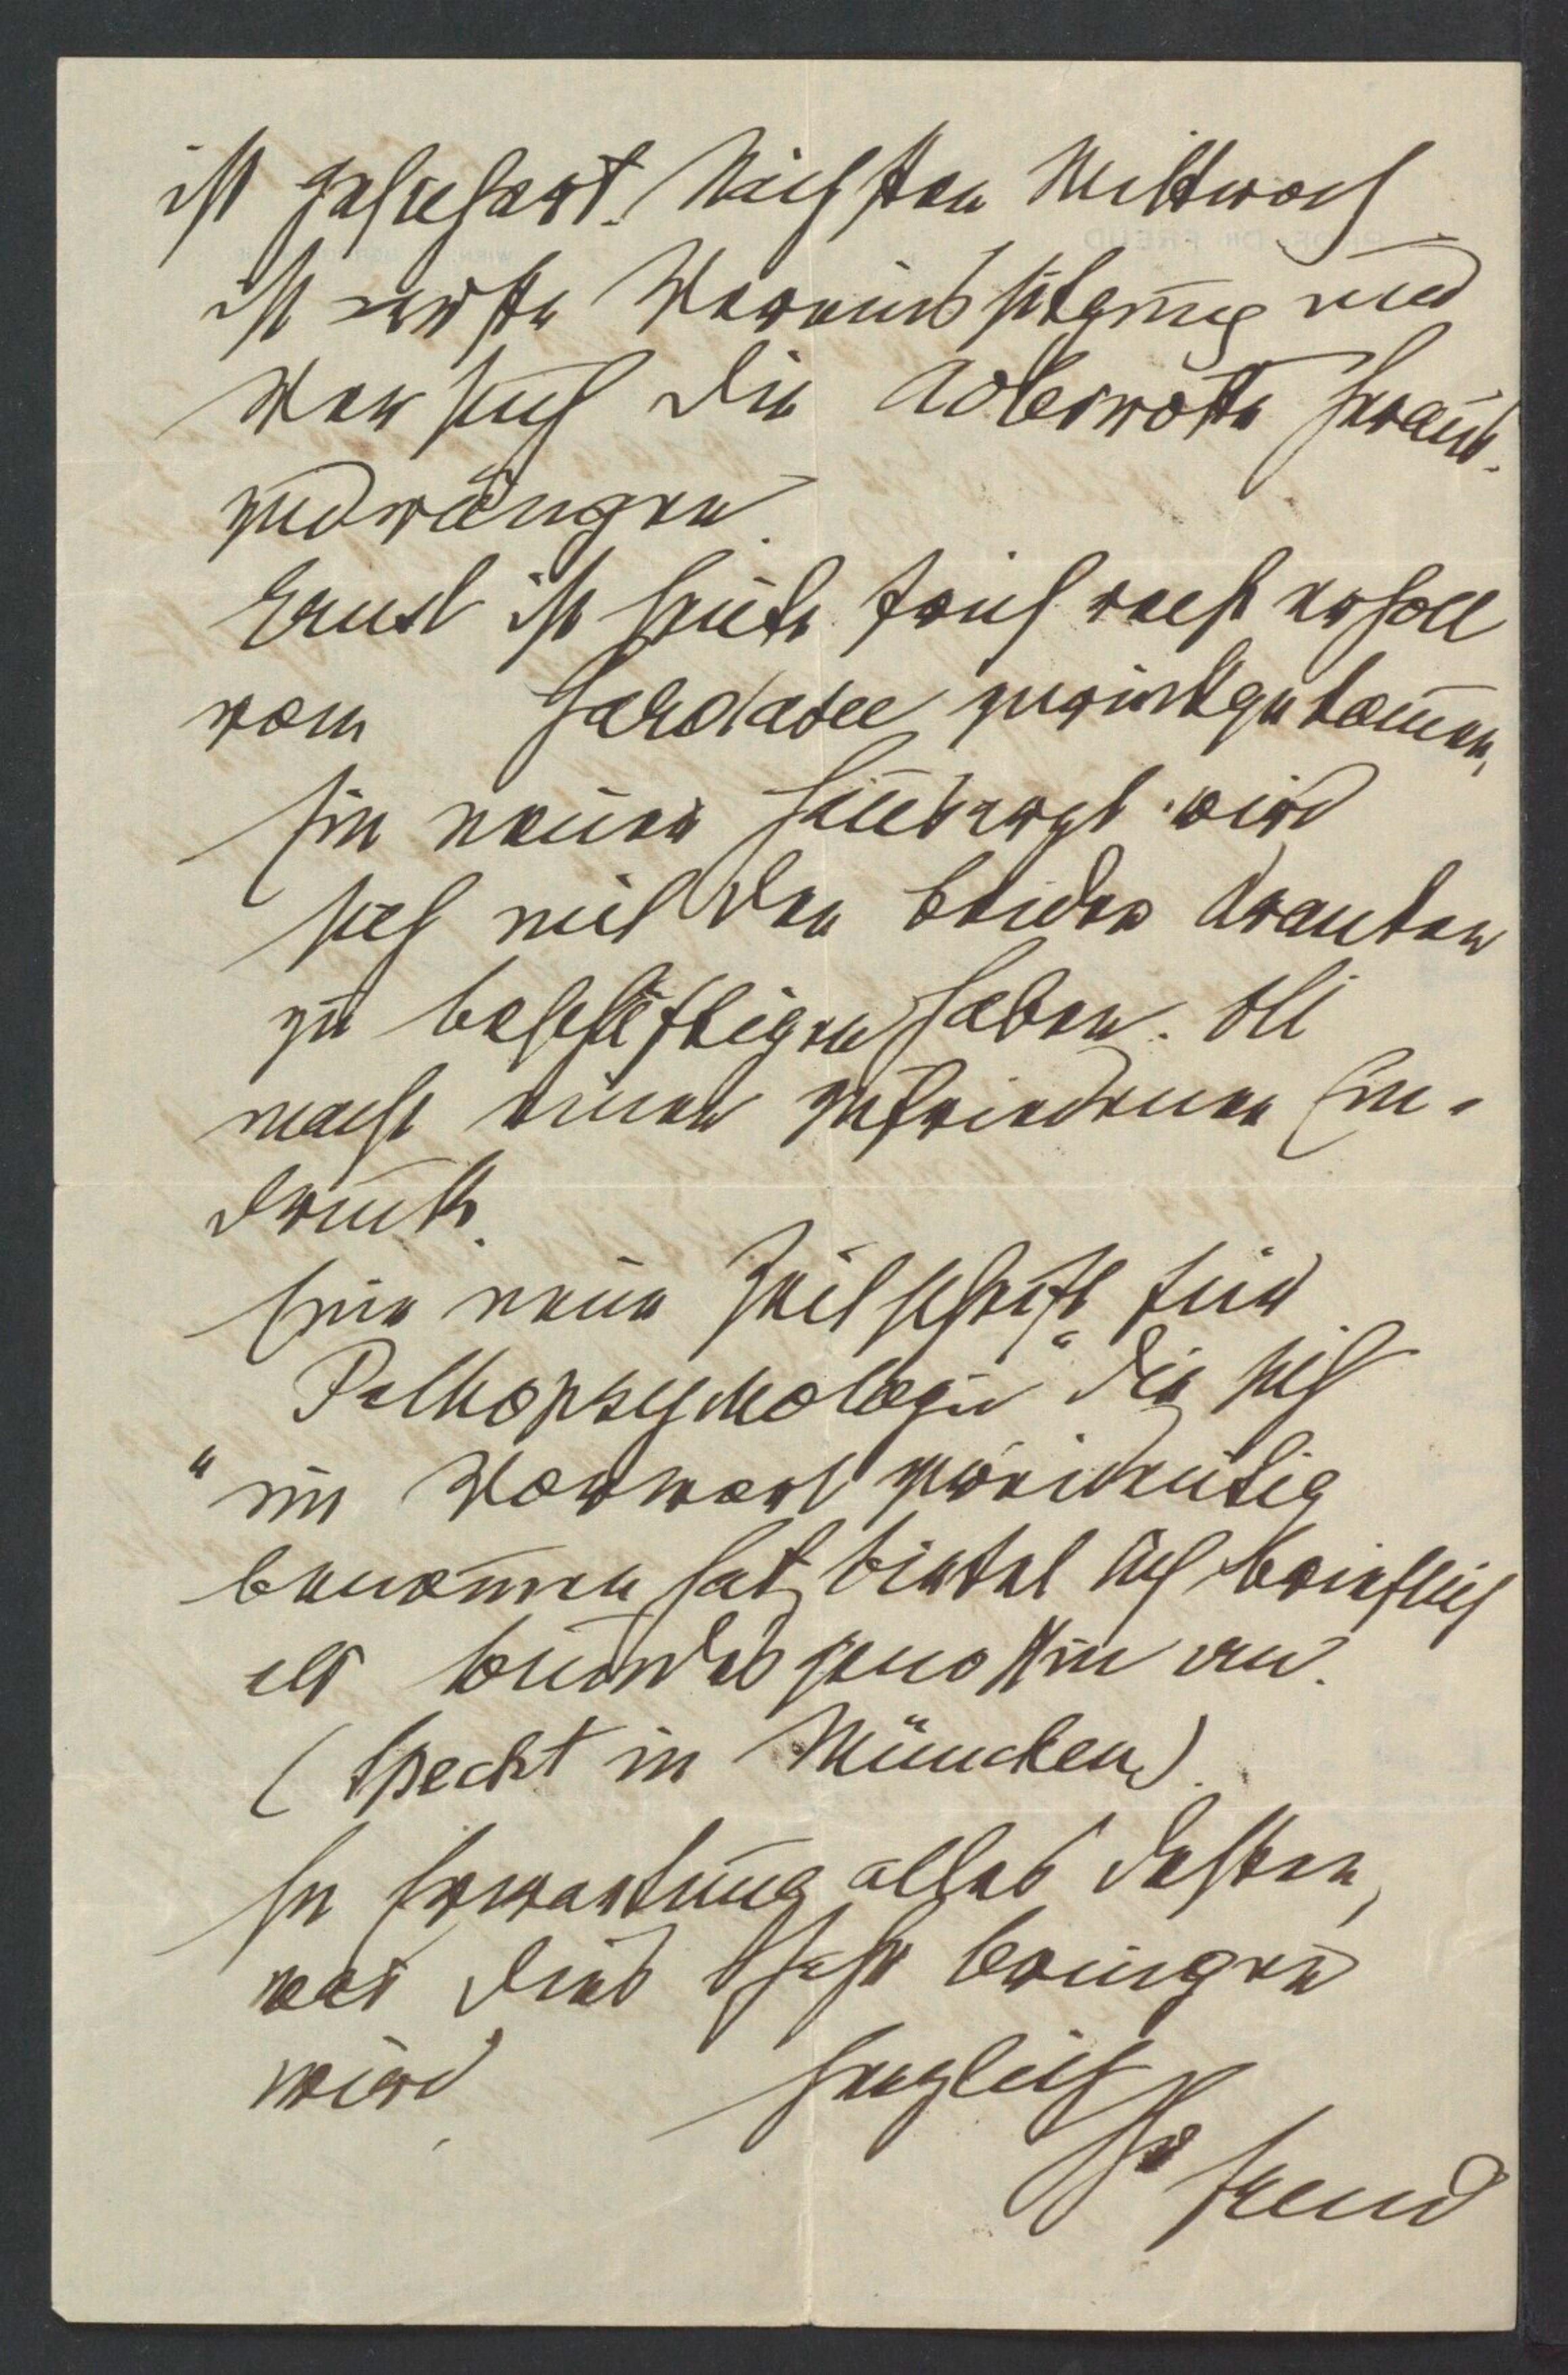 ist gesichert. Nächsten Mittwoch
ist erste Vereinssitzung und
Versuch die Adlerrotte heraus-
zudrängen.
Ernst ist heute früh recht erholt
vom Gardasee zurückgekommen,
Ein neuer Hausarzt wird
sich mit den beiden Kranken
zu beschäftigen haben. Oli
macht einen zufriedenen Ein-
druck.
Eine neue Zeitschrift für
Pathopsychologie" die sich
"im Vorwort zweideutig
benommen hat, bietet sich brieflich
als Bundesgenossin an.
(Specht in München).
In Erwartung alles dessen,
was dies Jahr bringen
wird
herzlich
Ihr Freud